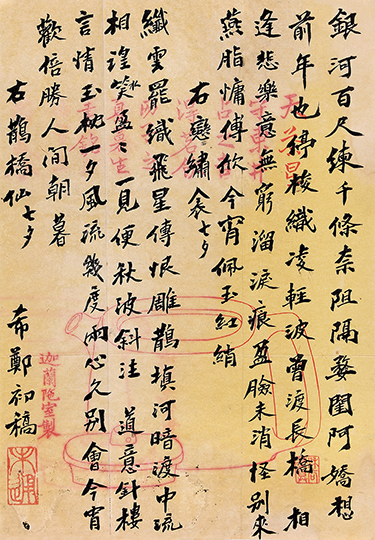 銀河百尺練千條奈阻隔婺閨阿嬌想
前年也停梭織凌輕波曾渡長橋 相
逢悲樂意無窮溜淚痕盈臉未消怪別來
燕脂慵傅欣今宵佩玉紅綃
右戀繡衾七夕
纖雲罷織飛星傳恨雕鵲填河暗渡中流
相笑盈〻一見便秋波斜注 道意針樓
言情玉枕一夕風流幾度兩心久別會今宵
歡倍勝人間朝暮
右鵲橋仙七夕
希鄭初稿
迦蘭陀室製